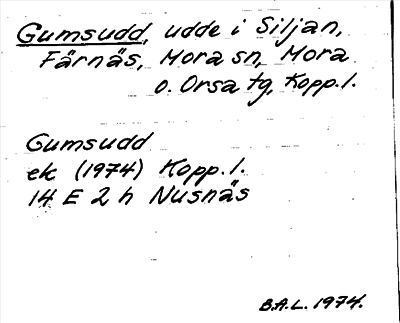 Gumsudd, udde i Siljan,
Färnäs, Mora sn, Mora
o. Orsa tg, Kopp.l.
Gumsudd
ek (1974) Kopp.l.
14 E 2 h Nusnäs
B.A.L. 1974.